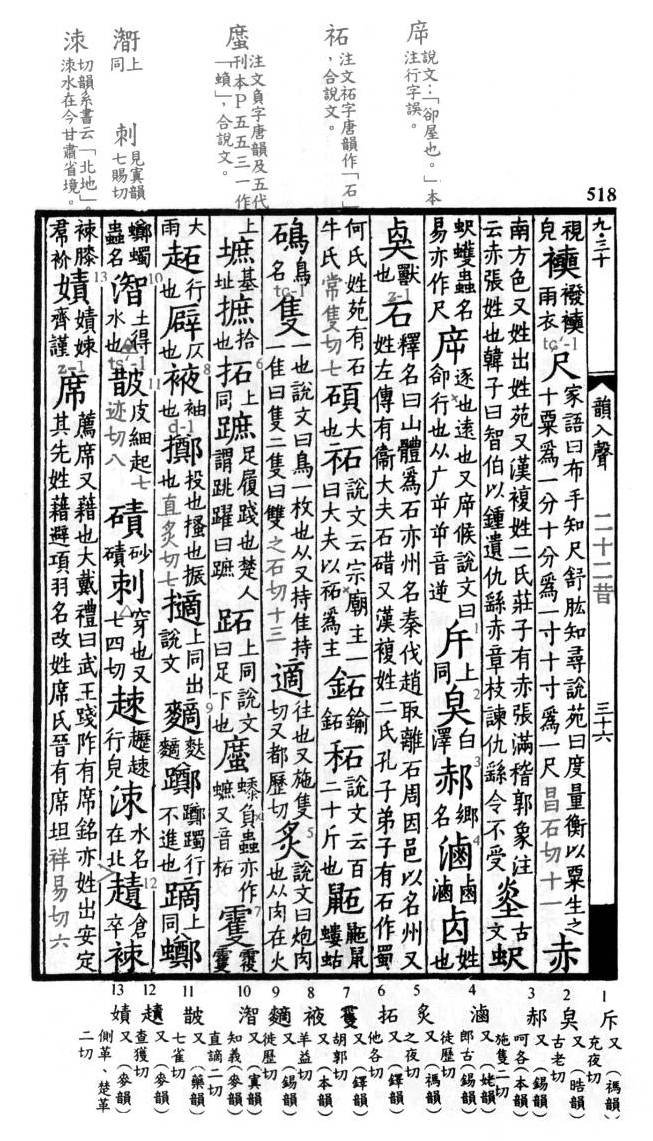 518
㡿
說文：「卻屋也。」本
注行字誤。
祏
注文祏字唐韻作「石」
，合說文。
䗪
注文負字唐韻及五代
刊本P五五三一作
「蟦」，合說文。
㴛
上同
刺
見寘韻
七賜切
涑
切韻系書云「北地」。
涑水在今甘肅省境。
九·三十 韻入聲 二十二昔 三十六
視皃襫襏襫雨衣tɕ‘-1尺家語曰布手知尺舒肱知尋說苑曰度量衡以粟生之十粟爲一分十分爲一寸十寸爲一尺昌石切十一赤
南方色又姓出姓苑又漢複姓二氏莊子有赤張滿稽郭象注云赤張姓也韓子曰智伯以鍾遺仇繇赤章枝諫仇繇令不受烾古文蚇
蚇蠖蟲名易亦作尺㡿逐也遠也又㡿候說文曰卻行也从广屰屰音逆斥上同臭白澤郝鄉名滷鹵滷卤姓也
㚖獸也z-1石釋名曰山體爲石亦州名秦伐趙取離石周因邑以名州又姓左傳有衞大夫石碏又漢複姓二氏孔子弟子有石作蜀
何氏姓苑有石牛氏常隻切七碩大也祏說文云宗廟主一曰大夫以祏爲主鉐鍮鉐䄷說文云百二十斤也鼫鼫鼠螻蛄
䃍鳥名tɕ-1隻一也說文曰鳥一枚也从又持隹持一隹曰隻二隹曰雙之石切十三適往也又施隻切又都歷切炙說文曰炮肉也从肉在火
上墌基址摭拾也拓上同蹠足履踐也楚人謂跳躍曰蹠跖上同說文曰足下也䗪負蟲亦作蟅又音柘
大雨䞠行也㢌仄也袚袖也d-1擲投也搔也振也直炙切七擿上同出說文䵂麩䵂躑躑躅行不進也蹢上同䗖
䗖蠋蟲名㴛土得水也ts‘-1皵皮細起七迹切八磧砂磧刺穿也又七四切趚䟏趚行皃涑水名在北趲倉卒𧛹
𧛹膝帬衸嫧嫧㛦齊謹z-1席薦席又藉也大戴禮曰武王踐阼有席銘亦姓出安定其先姓藉避項羽名改姓席氏晉有席坦祥易切六
1 斥 又（禡韻）充夜切
2 臭 又（晧韻）古老切
3 郝 又（錫韻）呵各（本韻）施隻二切
4 滷 又（姥韻）郎古（錫韻）徒歷切
5 炙 又（禡韻）之夜切
6 拓 又（鐸韻）他各切
7 又（鐸韻）胡郭切
8 又（本韻）羊益切
9 又（錫韻）徒歷切
10 㴛 又（寘韻）知義（麥韻）直謫二切
11 皵 又（藥韻）七雀切
12 又（麥韻）查獲切
13 嫧 又（麥韻）側革、楚革二切